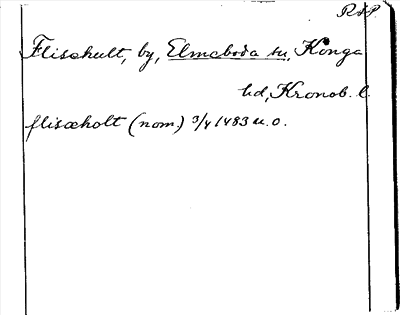 RAP.
Flisehult, by, Elmeboda sn, Konga
hd, Kronob. l.
flisæholt (nom.) 3/4 1483 u. o.